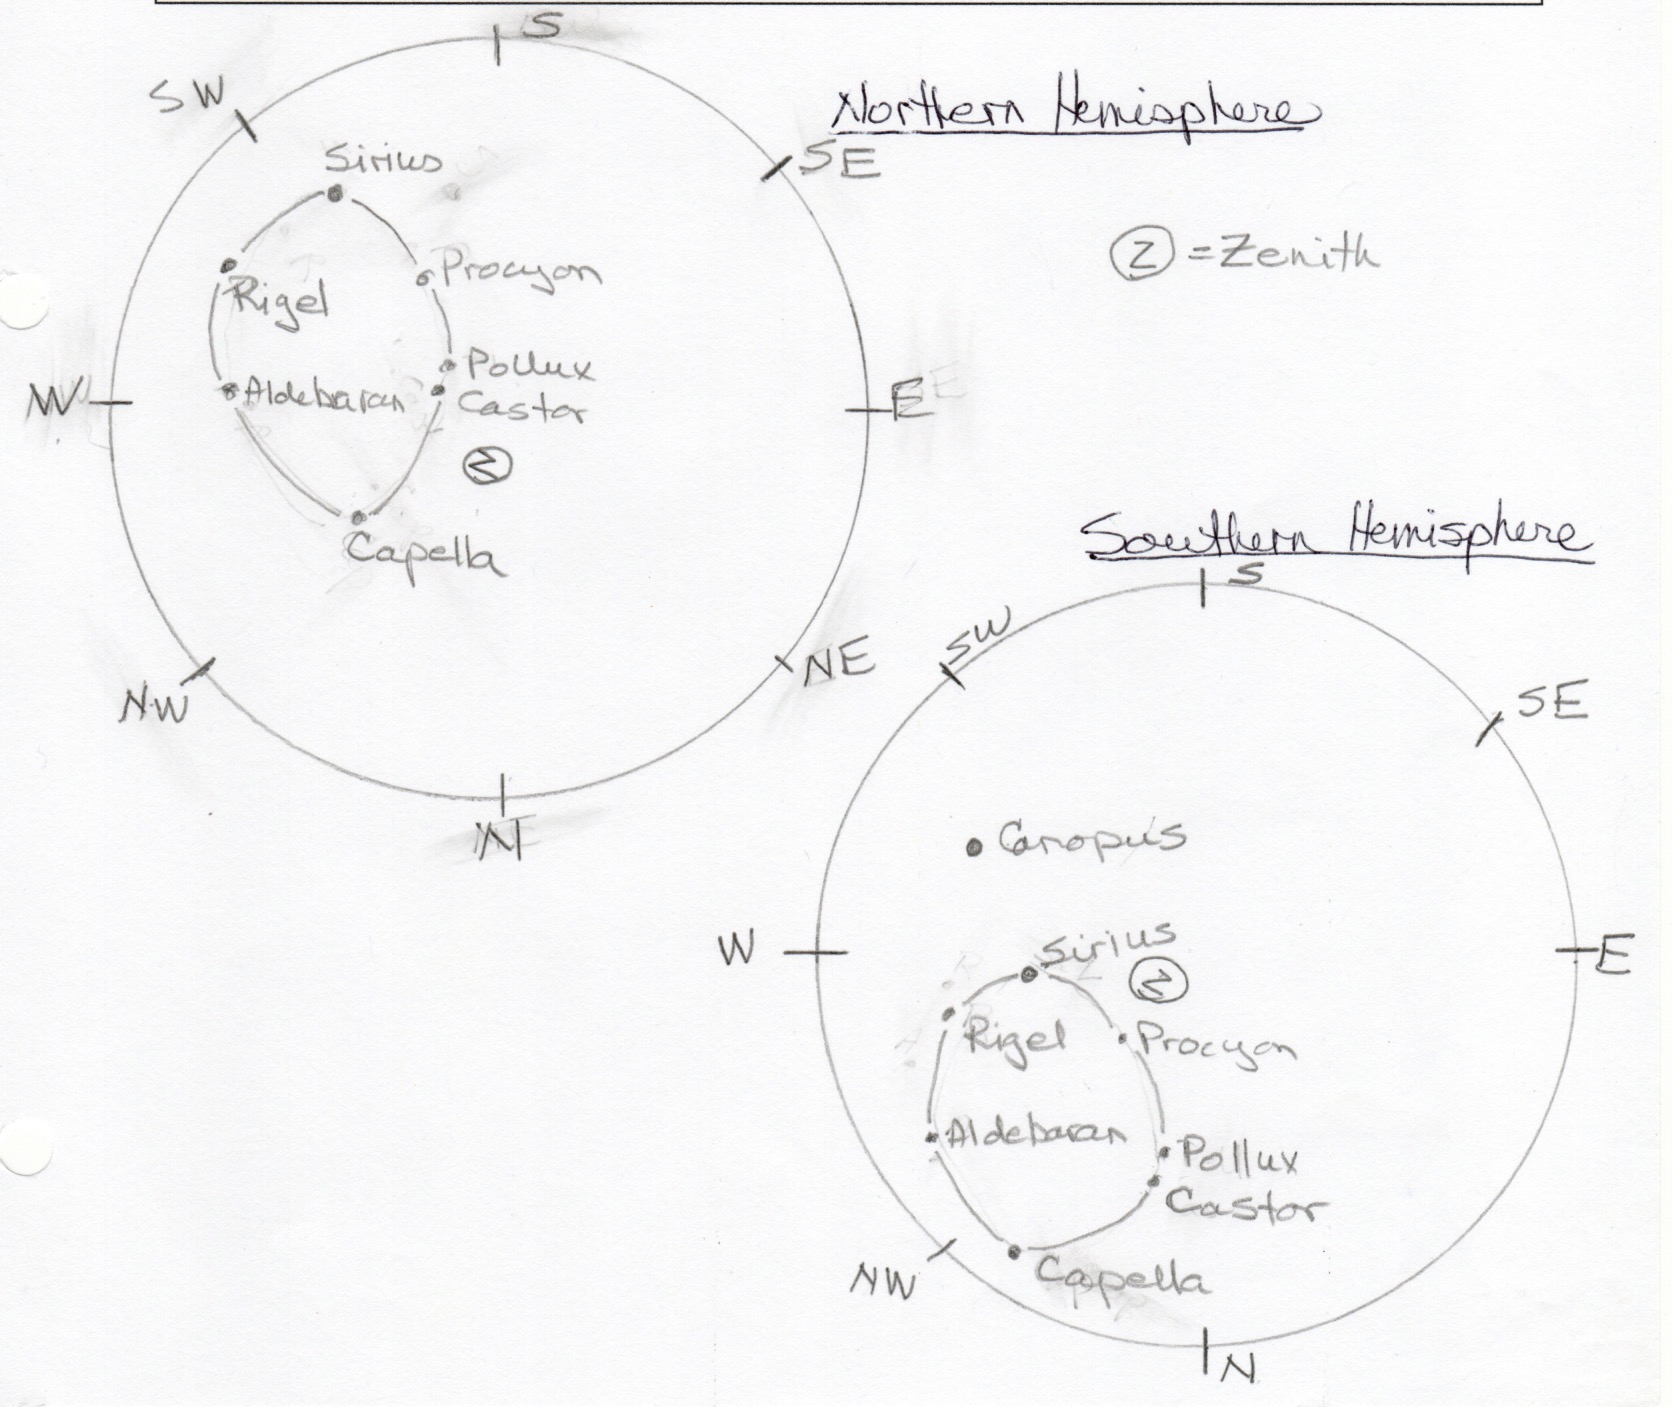 S
SW
Northern Hemisphere
SE
Sirius
Z = Zenith
Procyon
Rigel
Pollux
W
Aldebaran
Castor
E
Z
Capella
NE
NW
N
Southern Hemisphere
S
SW
SE
Canopus
W
Sirius
E
Z
Rigel
Procyon
Aldebaran
Pollux
Castor
NW
Capella
N